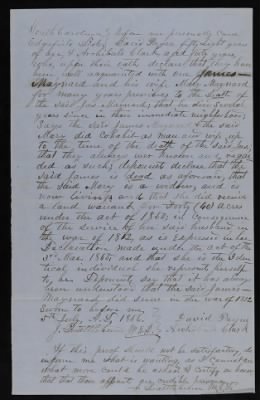 South Carolina } before me personally came
Edgefield Dist. } David Payne fifty eight years
of age & Archibald Clark aged sixty years,
who, upon their oath declare that they have
been well acquainted with one James
Maynard and his wife Mary Maynard
for many years previous to the death of
the said Jas Maynard; that he died several
years since in their immediate neighborhood;
Says the said James Maynard & the said
Mary did cohabit as man and wife up
to the time of the death of the said Jas;
that they always were known and regar-
ded as such; deponents declare that the
said James is dead as aforesaid, that
the said Mary is a widow, and is
now living & and that she did receive
a land warrant for forty (40) acres
under the act of 1850 in consequence
of the service of her said husband in
the war of 1812, as is expressed in her
Declaration made under the act of the
3rd Mar. 1855 and that she is the Iden-
tical individual she represents herself
to be. Deponents say that it has always
been understood that the said James
Maynard did serve in the war of 1812
Sworn to before me
5th July, A.D. 1856 David Payne
Clark
If this proof should not be satisfactory do
inform me what is wanting as I cannot see
what more could be asked. I certify on honor
that that those affiants are credible persons